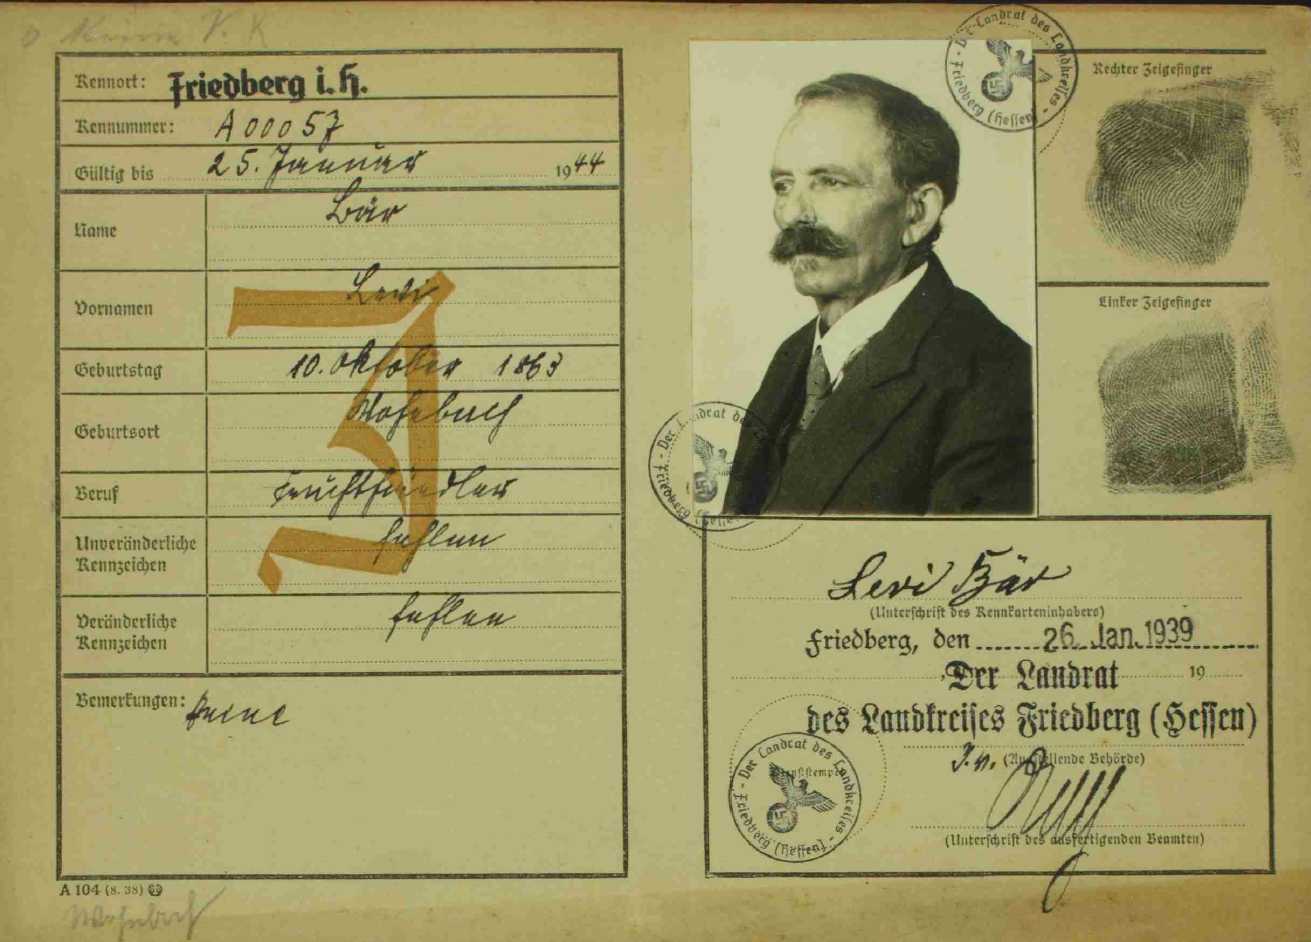 Keine V. K
Kennort: Friedberg i. H.
Kennummer: A 00057
Gültig bis 25. Januar 1944
Name Bär
Vornamen Levi
Geburtstag 10. Oktober 1863
Geburtsort Wohnbach
Beruf Fruchthändler
Unveränderliche Kennzeichen fehlen
Veränderliche Kennzeichen fehlen
Bemerkungen: Keine
J
A 104 (8. 38)
Wohnbach
Der Landrat des Landkreises - Friedberg (Hessen) -
Rechter Zeigefinger
Linker Zeigefinger
Der Landrat des - Friedberg (Hessen)
Levi Bär
(Unterschrift des Kennkarteninhabers)
Friedberg, den 26. Jan. 1939
Der Landrat 19
des Landkreises Friedberg (Hessen)
J. V. (Ausstellende Behörde)
Dienststempel
Der Landrat des Landkreises - Friedberg (Hessen) -
(Unterschrift des ausfertigenden Beamten)